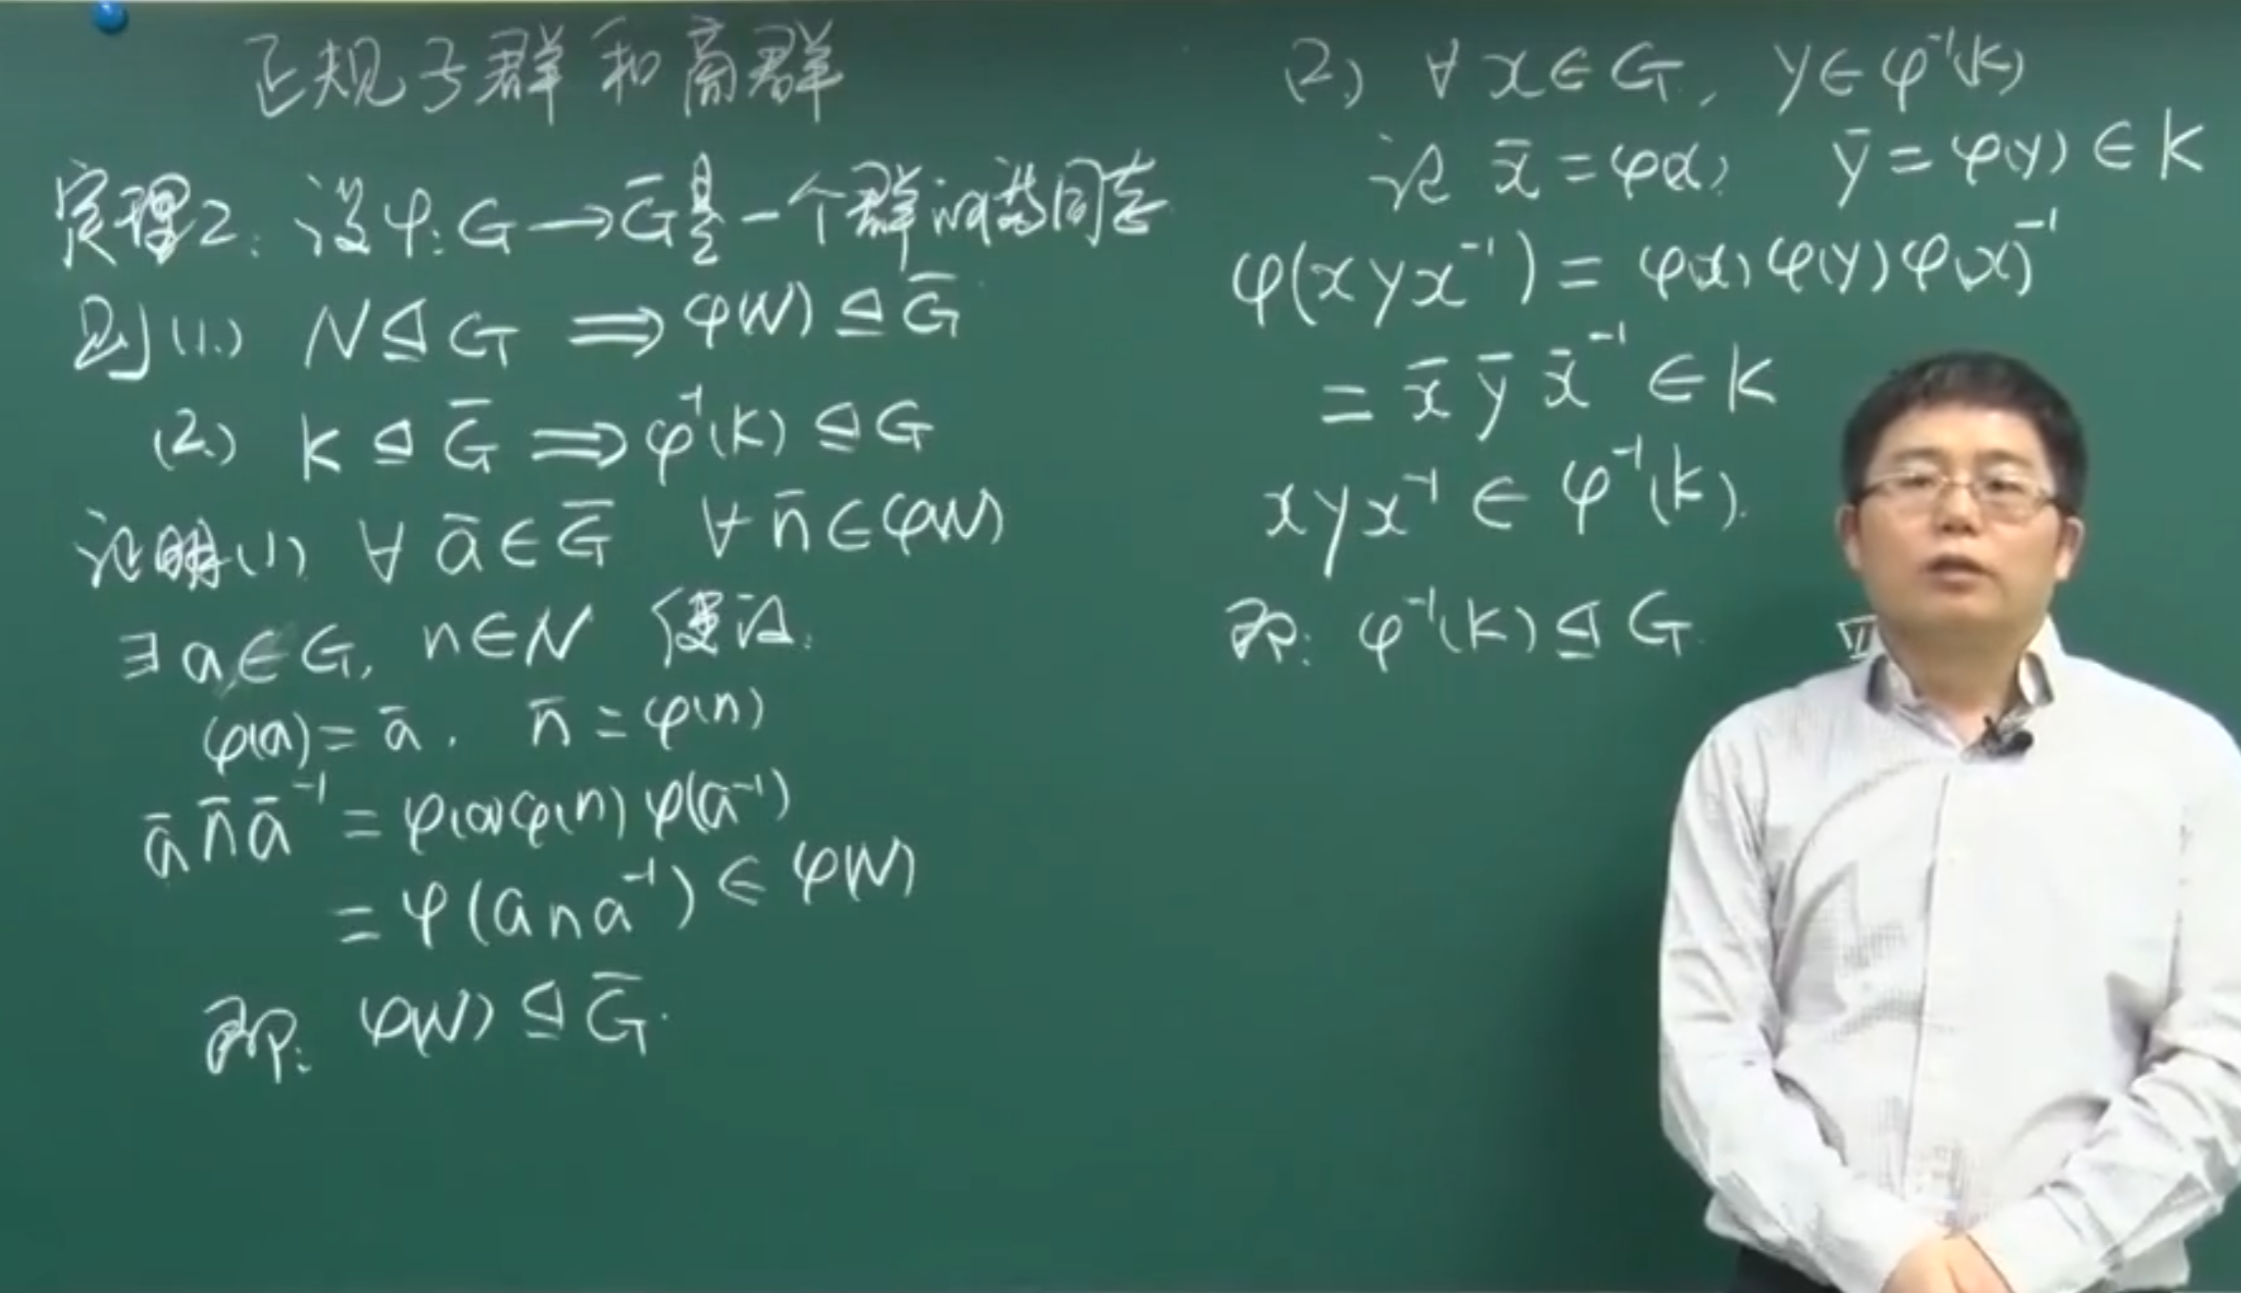 正规子群和商群
定理2: 设φ: G → G̅ 是一个群的满同态
则(1.) N ⊴ G ⟹ φ(N) ⊴ G̅
(2.) K ⊴ G̅ ⟹ φ⁻¹(K) ⊴ G
证明(1) ∀ a̅ ∈ G̅ ∀ n̅ ∈ φ(N)
∃ a ∈ G, n ∈ N 使得:
φ(a) = a̅. n̅ = φ(n)
a̅ n̅ a̅⁻¹ = φ(a)φ(n)φ(a⁻¹)
= φ(ana⁻¹) ∈ φ(N)
即: φ(N) ⊴ G̅.
(2.) ∀ x ∈ G, y ∈ φ⁻¹(K)
记 x̅ = φ(x) y̅ = φ(y) ∈ K
φ(xyx⁻¹) = φ(x)φ(y)φ(x)⁻¹
= x̅ y̅ x̅⁻¹ ∈ K
xyx⁻¹ ∈ φ⁻¹(K).
即: φ⁻¹(K) ⊴ G.